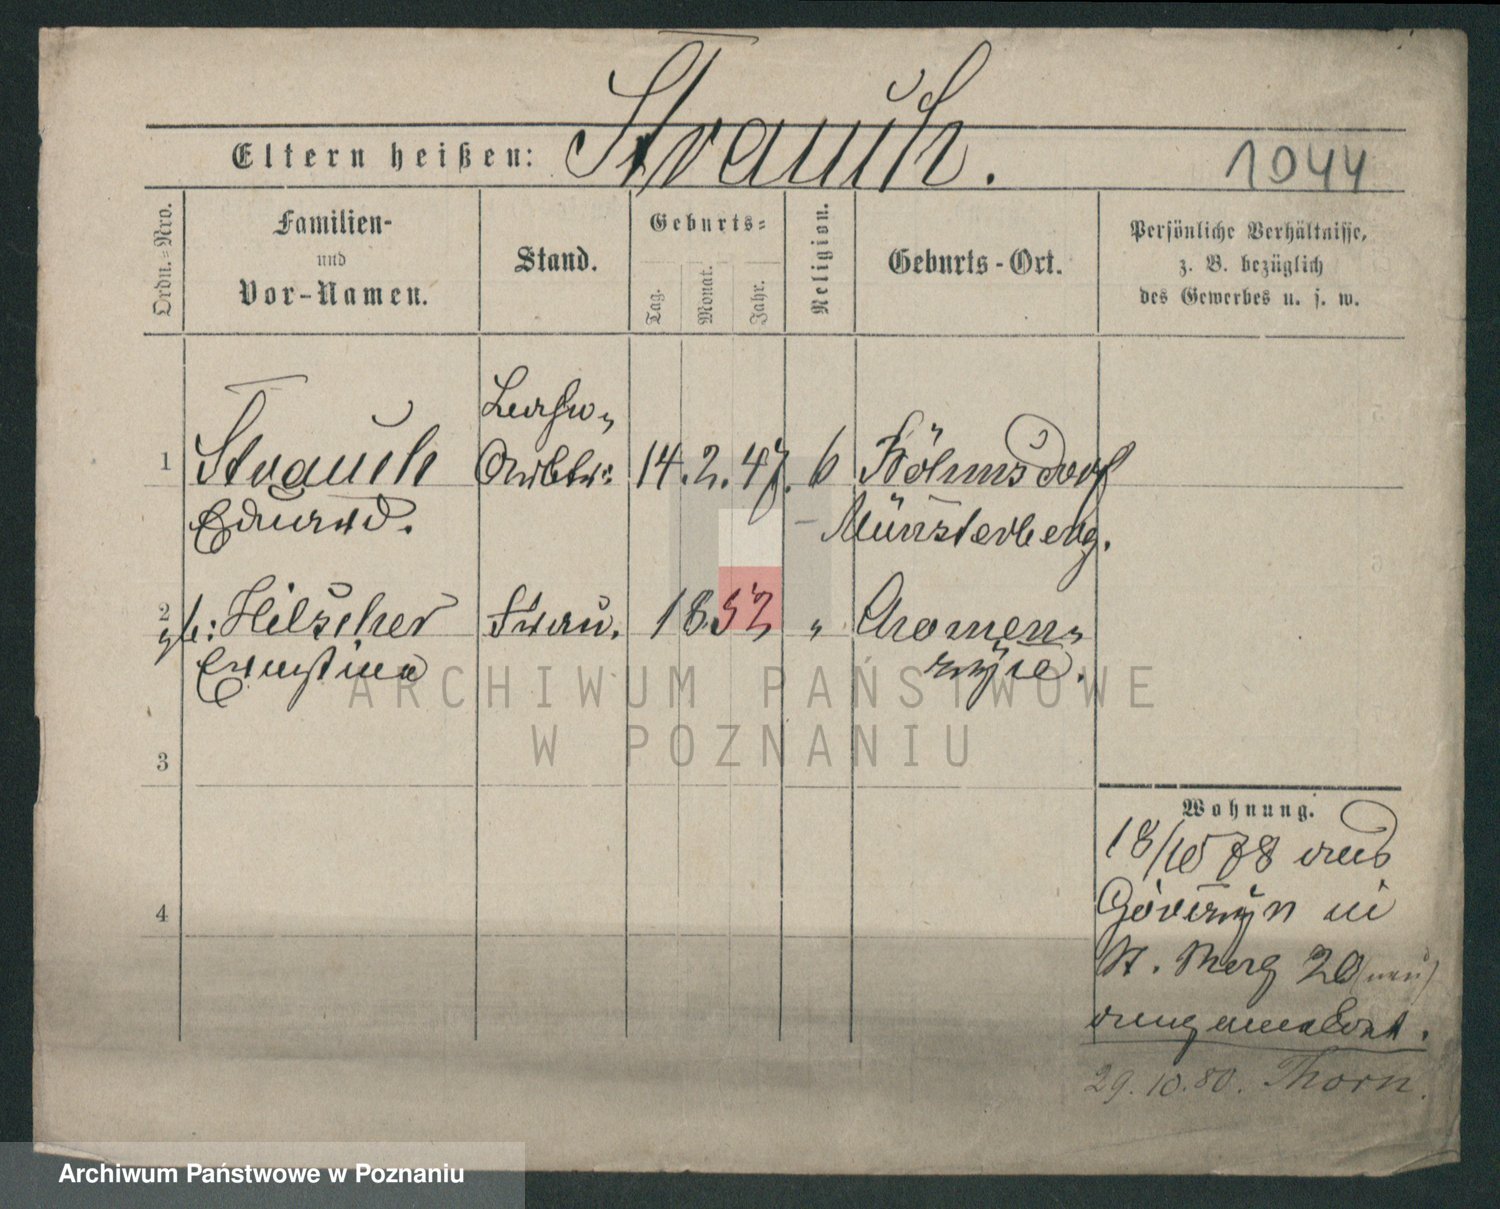 Strauch.
Eltern heißen:
1044
Ordn.=Nro.
Familien-
und
Vor-Namen.
Stand.
Geburts=
Tag.
Monat.
Jahr.
Religion.
Geburts-Ort.
Persönliche Verhältnisse,
z. B. bezüglich
des Gewerbes u. s. w.
1
Strauch
Eduard.
14. 2. 47.
Böhmsdorf
Münsterberg.
2
gb: Hilscher
Ernstine
Frau.
1852
"
3
4
Wohnung.
18/10 78 aus
in
St. Marg 20 (neu)
angemeldet.
29. 10. 80. Thorn.
ARCHIWUM PAŃSTWOWE
W POZNANIU
Archiwum Państwowe w Poznaniu